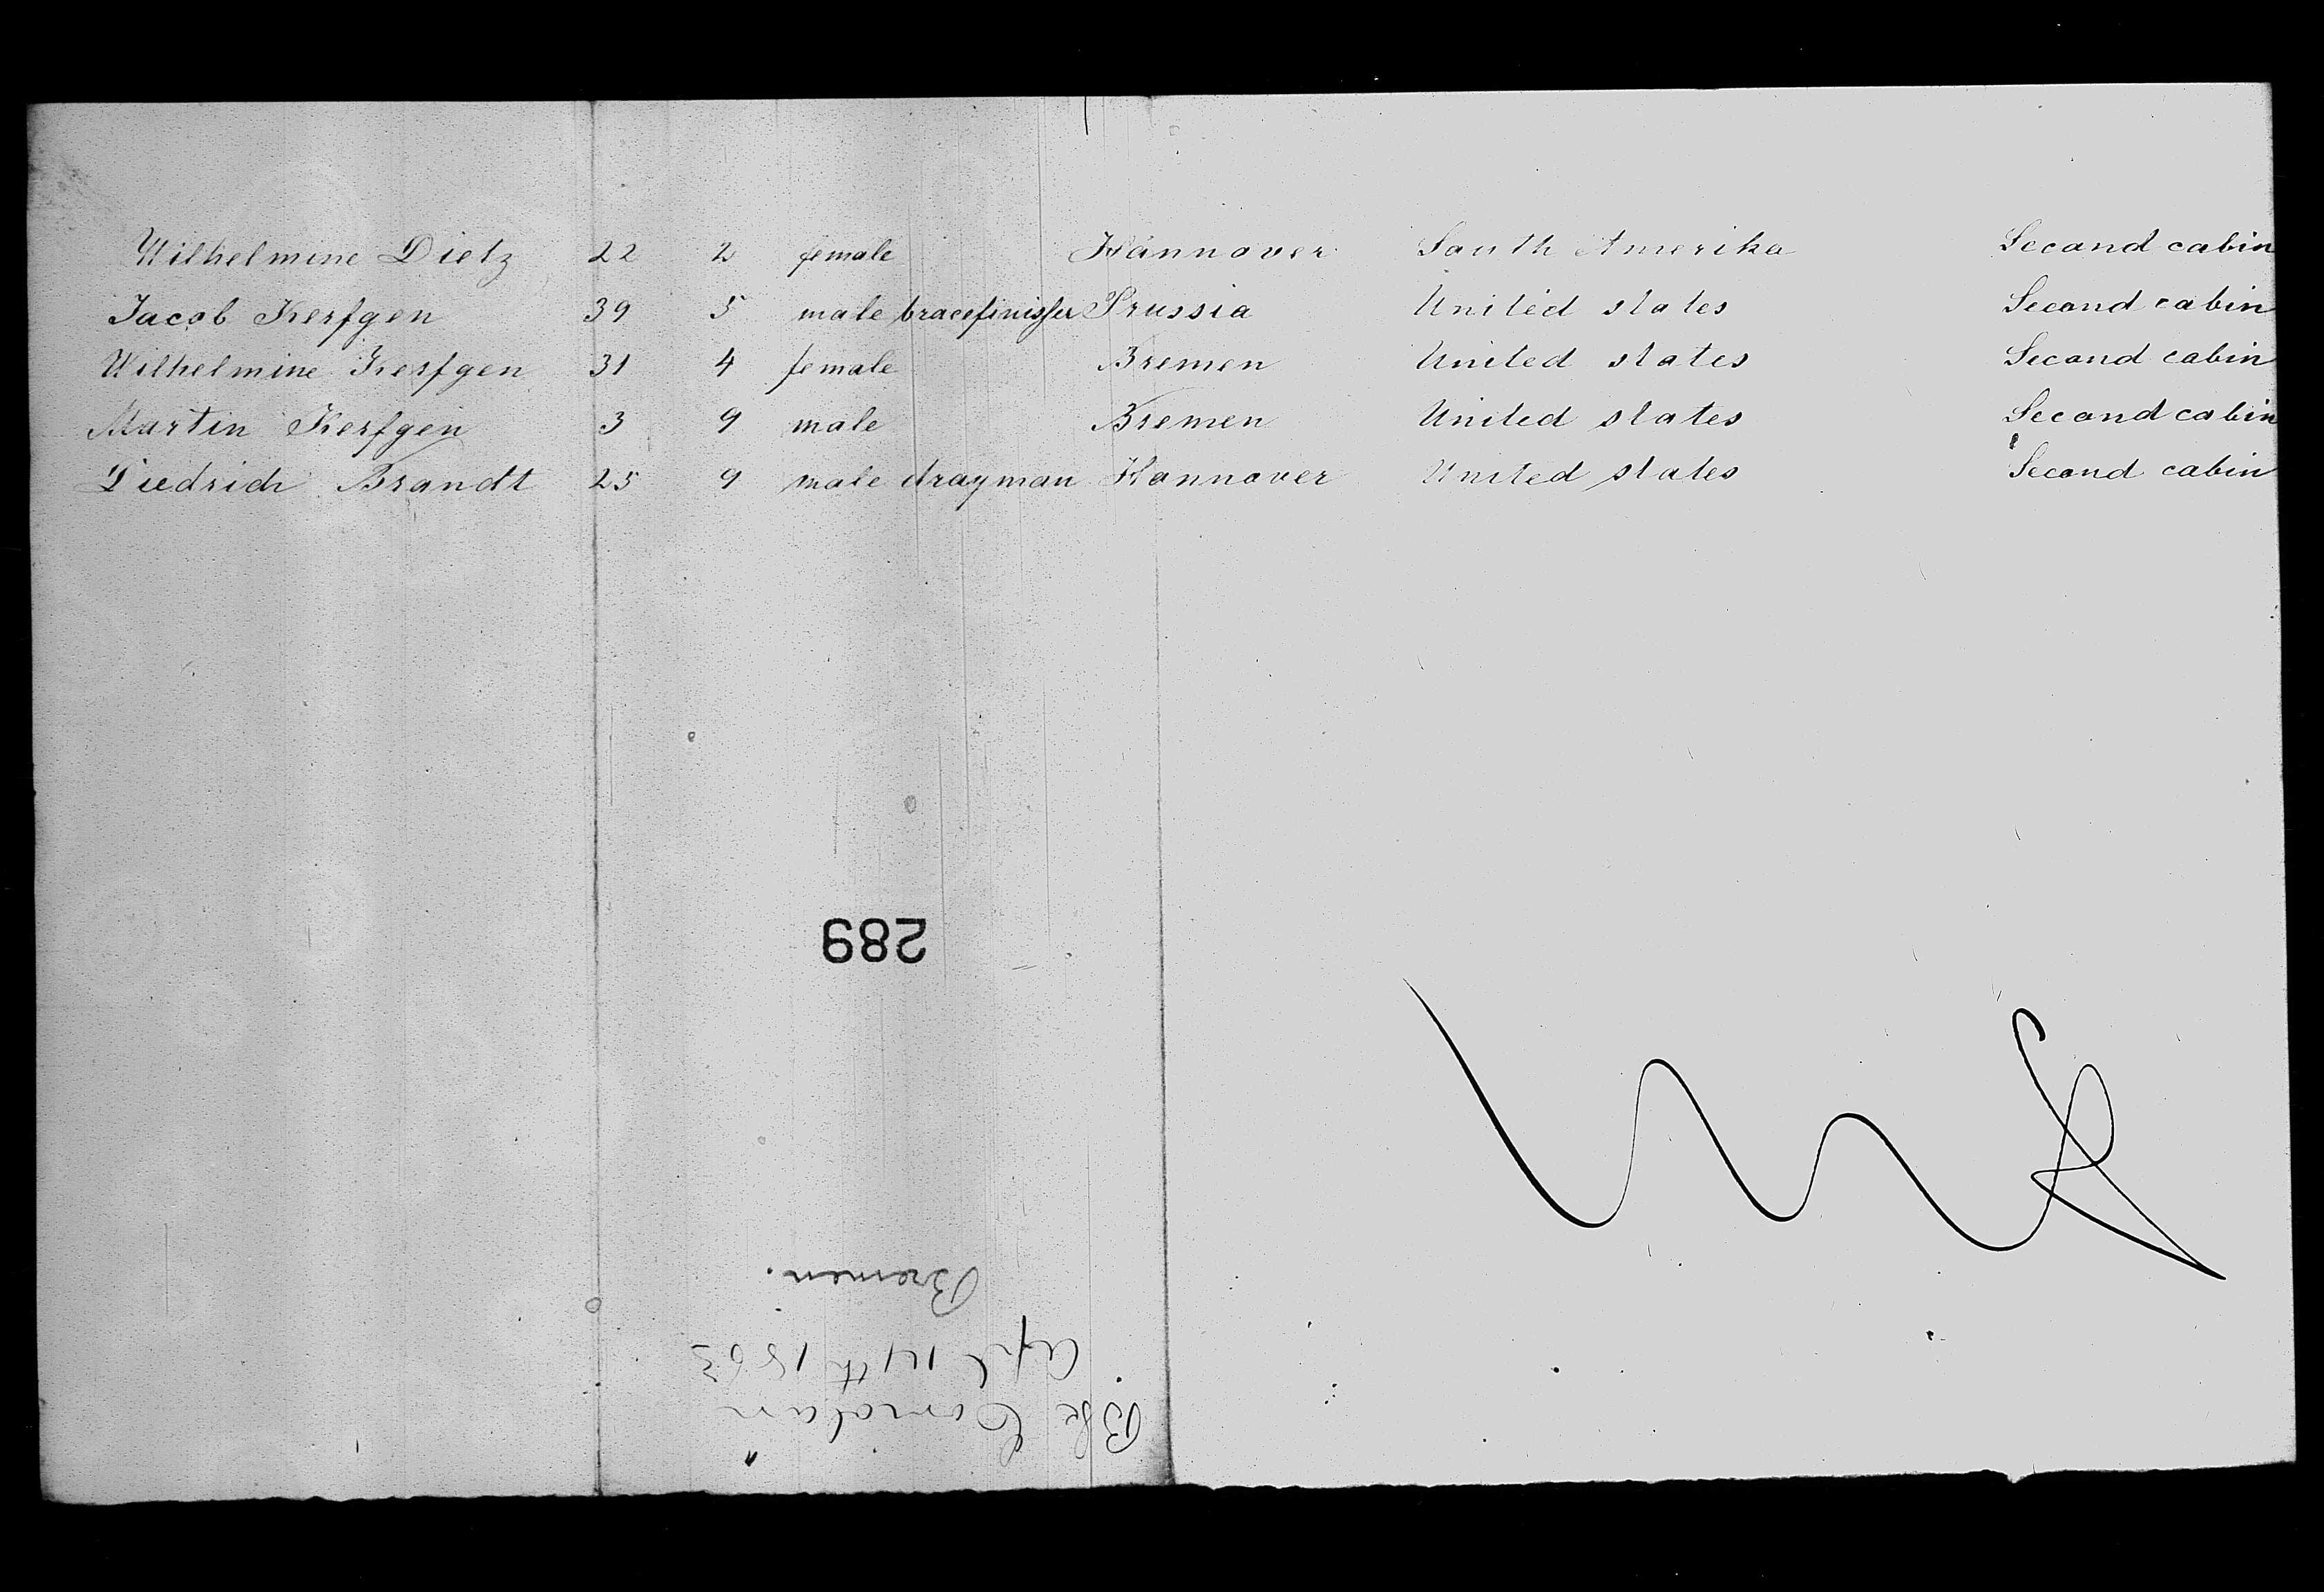 Wilhelmine Dietz 22 2 female Hannover South Amerika Second cabin
Jacob Kerfgen 39 5 male bracefinisher Prussia United states Second cabin
Wilhelmine Kerfgen 31 4 female Bremen United states Second cabin
Martin Kerfgen 3 9 male Bremen United states Second cabin
Diedrich Brandt 25 9 male drayman Hannover United states Second cabin
289
Bk
Apl 14th 1863
Bremen.